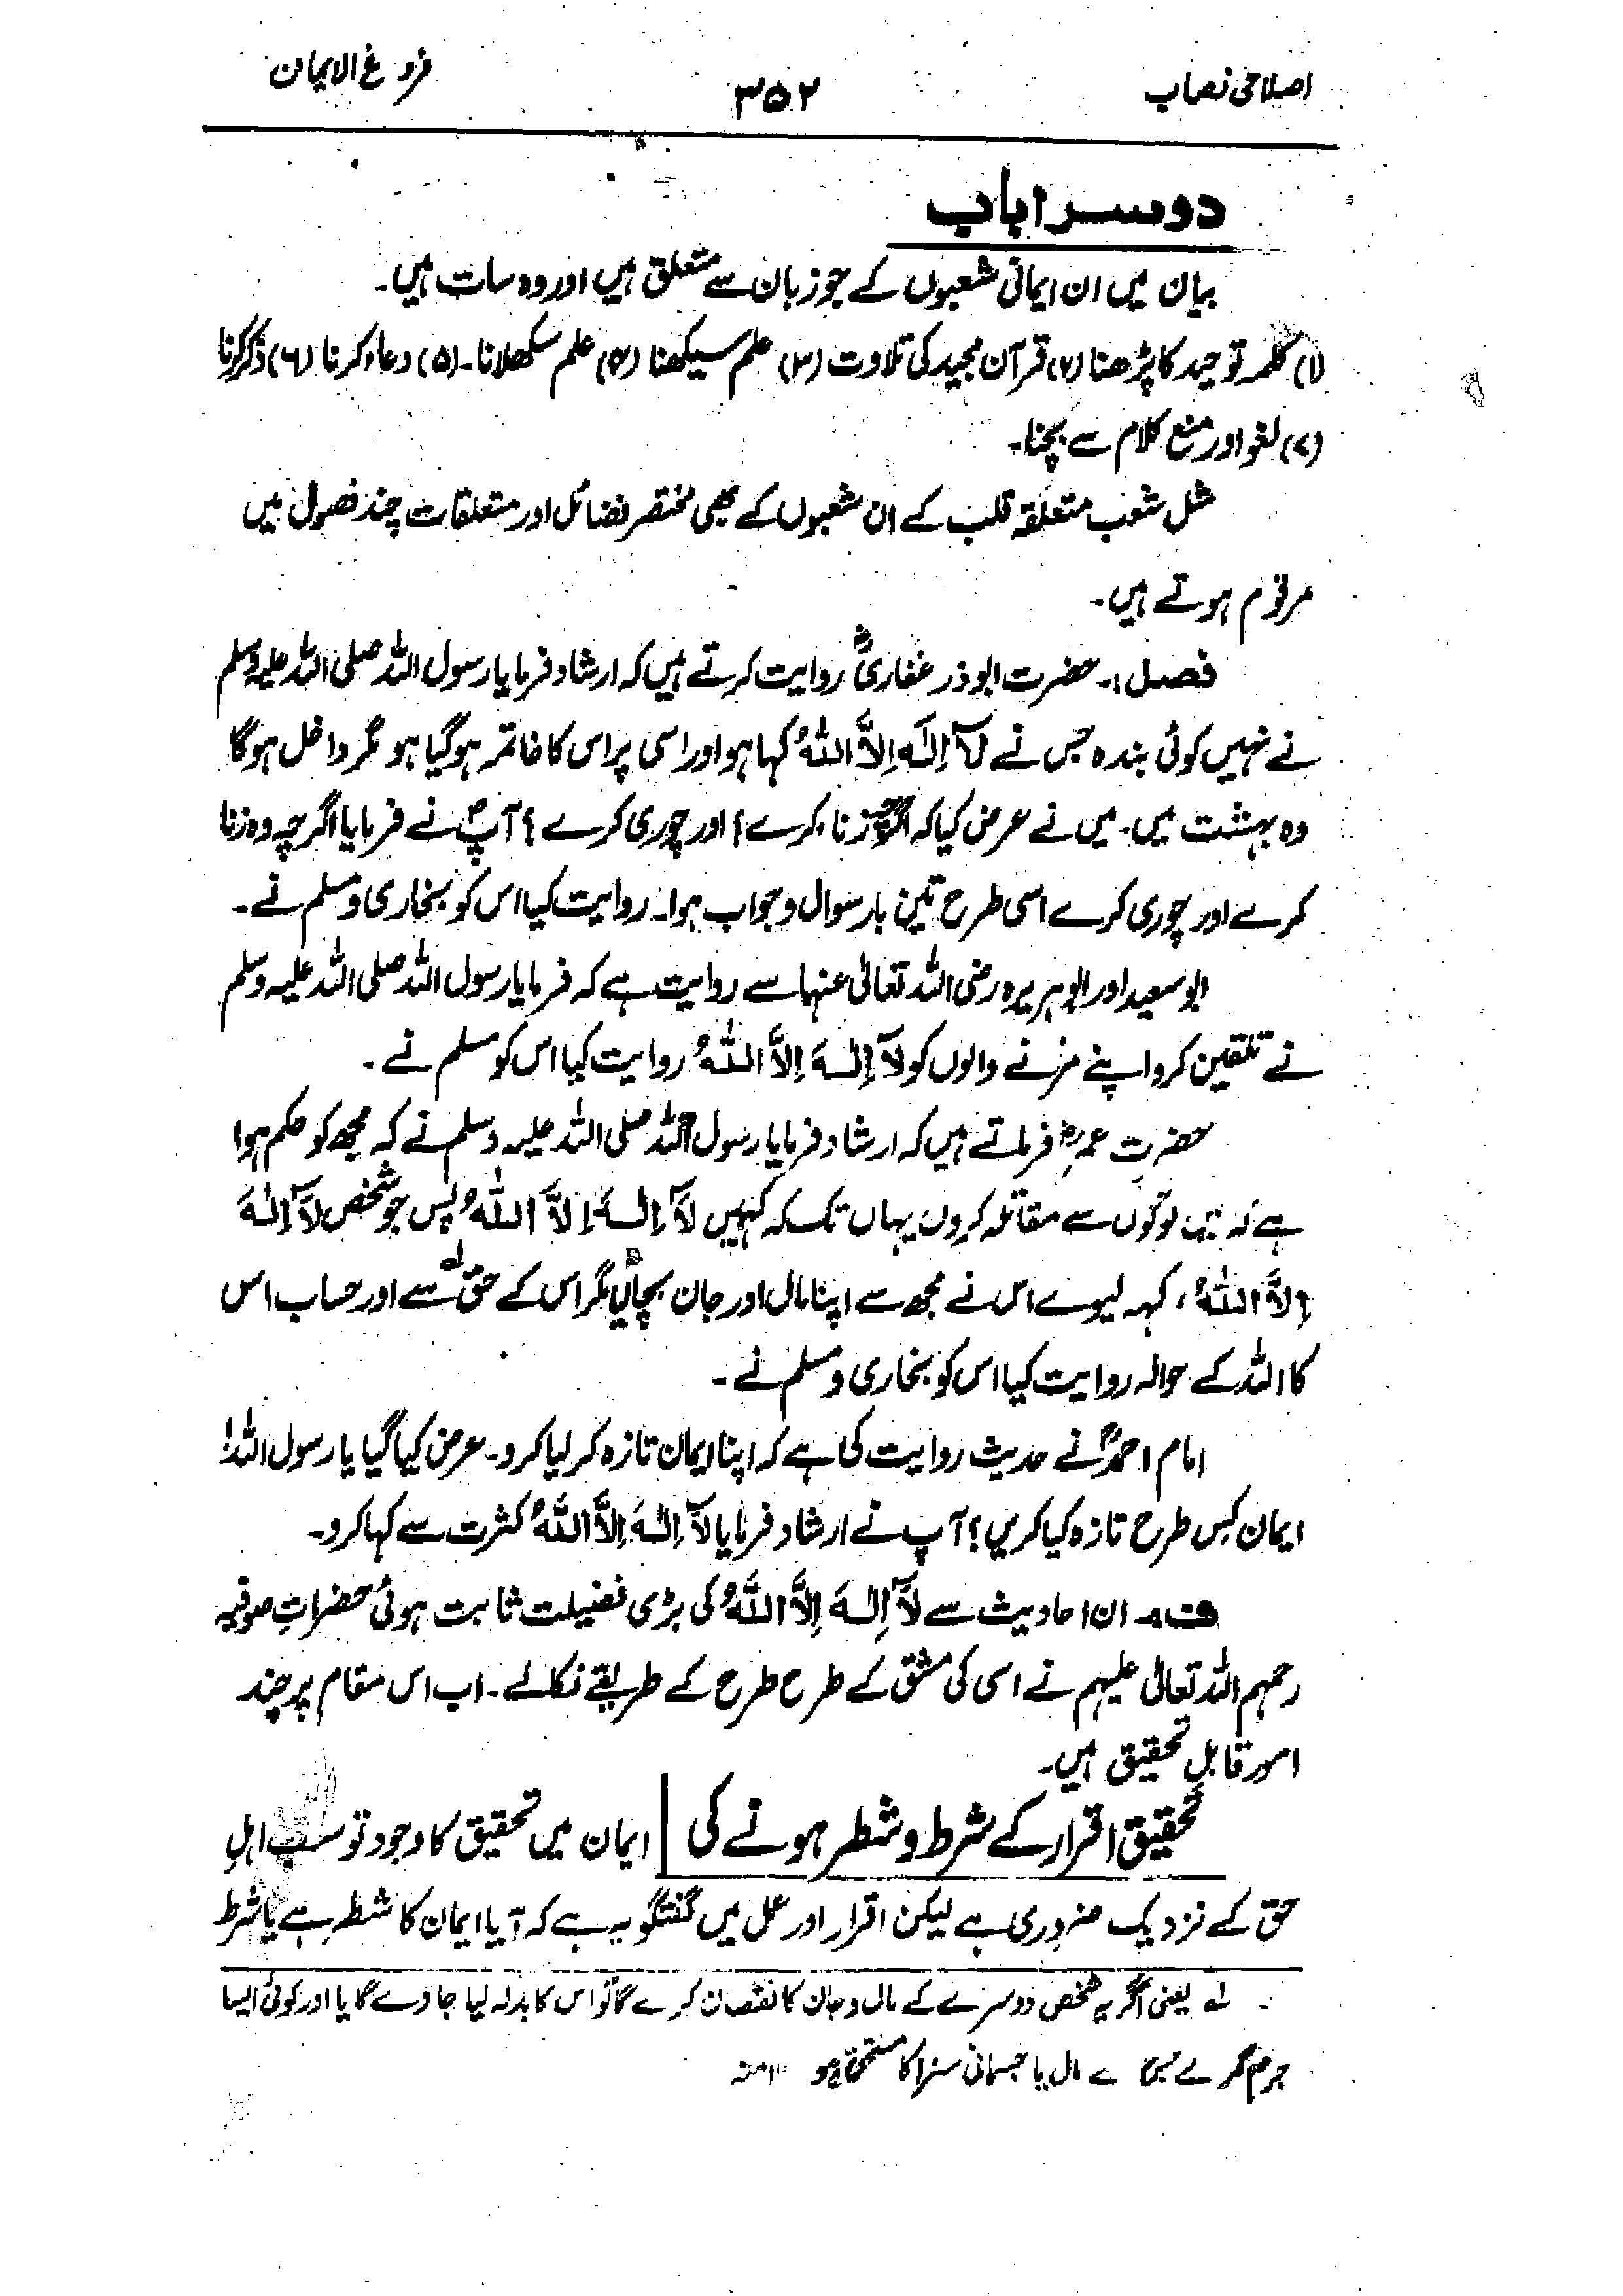 اصلاحی نصاب ۳۵۲ فروغ الایمان
دوسرا باب
بیان میں ان ایمانی شعبوں کے جو زبان سے متعلق ہیں اور وہ سات ہیں۔
(۱) کلمہ توحید کا پڑھنا (۲) قرآن مجید کی تلاوت (۳) علم سیکھنا (۴) علم سکھلانا۔ (۵) دعاء کرنا (۶) ذکر کرنا
(۷) لغو اور منع کلام سے بچنا۔
مثل شعب متعلقہ قلب کے ان شعبوں کے بھی مختصر فضائل اور متعلقات چند فصول میں
مرقوم ہوتے ہیں۔
فصل ۱۔ حضرت ابوذر غفاریؓ روایت کرتے ہیں کہ ارشاد فرمایا رسول اللہ صلی اللہ علیہ وسلم
نے نہیں کوئی بندہ جس نے لَآ اِلٰہَ اِلاَّ اللّٰہُ کہا ہو اور اسی پر اس کا خاتمہ ہو گیا ہو مگر داخل ہوگا
وہ بہشت میں۔ میں نے عرض کیا کہ اگرچہ زناء کرے؟ اور چوری کرے؟ آپؐ نے فرمایا اگرچہ وہ زنا
کرے اور چوری کرے اسی طرح تین بار سوال و جواب ہوا۔ روایت کیا اس کو بخاری و مسلم نے۔
ابو سعید اور ابو ہریرہ رضی اللہ تعالیٰ عنہا سے روایت ہے کہ فرمایا رسول اللہ صلی اللہ علیہ وسلم
نے تلقین کرو اپنے مرنے والوں کو لآَ اِلٰہَ اِلاَّ اللّٰہُ روایت کیا اس کو مسلم نے۔
حضرتِ عمرؓ فرماتے ہیں کہ ارشاد فرمایا رسول اللہ صلی اللہ علیہ وسلم نے کہ مجھ کو حکم ہوا
ہے کہ میں لوگوں سے مقاتلہ کروں یہاں تک کہ کہیں لآَ اِلٰہَ اِلاَّ اللّٰہُ پس جو شخص لآَ اِلٰہَ
اِلاَّ اللّٰہُ، کہہ لیوے اس نے مجھ سے اپنا مال اور جان بچالیا مگر اس کے حق ؎۱ سے اور حساب اس
کا اللہ کے حوالہ روایت کیا اس کو بخاری و مسلم نے۔
امام احمدؒ نے حدیث روایت کی ہے کہ اپنا ایمان تازہ کر لیا کرو۔ عرض کیا گیا یا رسول اللہ!
ایمان کس طرح تازہ کیا کریں؟ آپ نے ارشاد فرمایا لآَ اِلٰہَ اِلاَّ اللّٰہُ کثرت سے کہا کرو۔
ف:۔ ان احادیث سے لآَ اِلٰہَ اِلاَّ اللّٰہُ کی بڑی فضیلت ثابت ہوئی حضراتِ صوفیہ
رحمہم اللہ تعالیٰ علیہم نے اسی کی مشق کے طرح طرح کے طریقے نکالے۔ اب اس مقام پر چند
امور قابلِ تحقیق ہیں۔
تحقیق اقرار کے شرط و شطر ہونے کی | ایمان میں تحقیق کا وجود تو سب اہلِ
حق کے نزدیک ضروری ہے لیکن اقرار اور عمل میں گفتگو یہ ہے کہ آیا ایمان کا شطر ہے یا شرط
؎۱ یعنی اگر یہ شخص دوسرے کے مال و جان کا نقصان کرے گا تو اس کا بدلہ لیا جاوے گا یا اور کوئی ایسا
جرم کرے جس سے مال یا جسمانی سزا کا مستحق ہو ۱۲ منہ